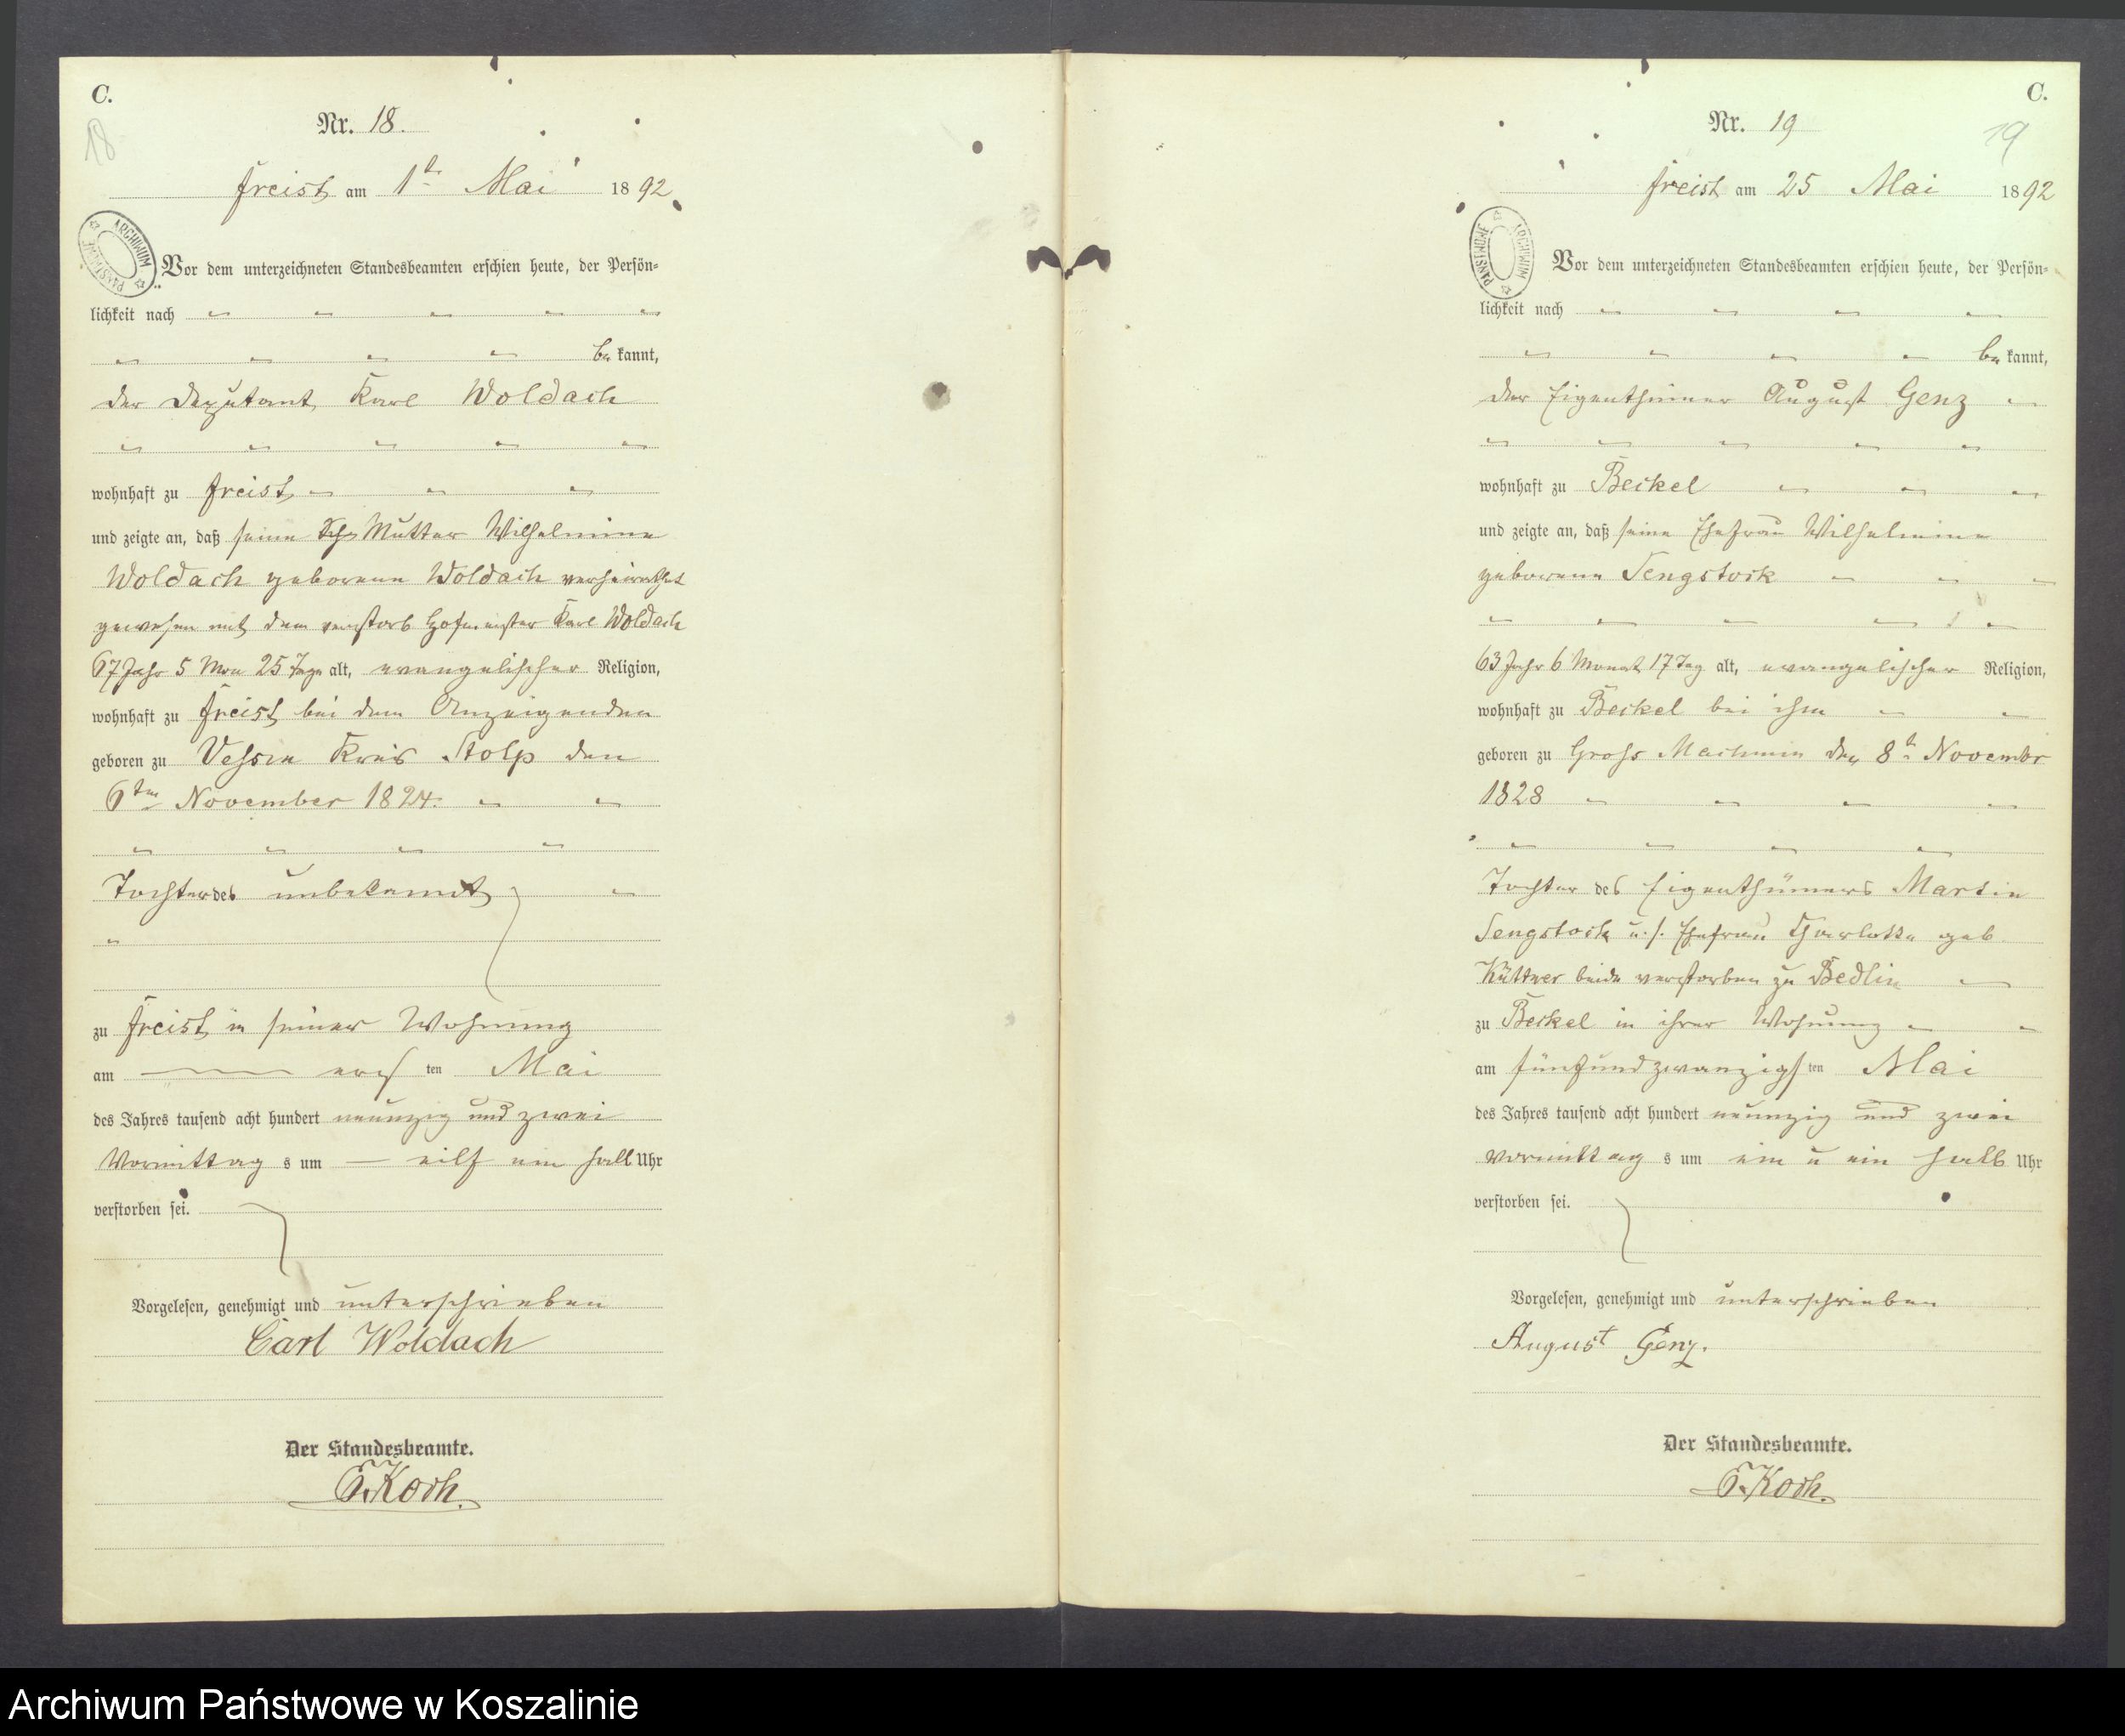 C.
18
Nr. 18.
Freist am 1t. Mai 1892
ARCHIWUM PAŃSTWOWE
Vor dem unterzeichneten Standesbeamten erschien heute, der Persön-
lichkeit nach
be kannt,
der Deputant Karl Woldach
wohnhaft zu Freist
und zeigte an, daß seine Mutter Wilhelmine
Woldach geborene Woldach verheirathet
gewesen mit dem verstorb Hofmeister Karl Woldach
67 Jahr 5 Mon 25 Tage alt, evangelischer Religion,
wohnhaft zu Freist bei dem Anzeigenden
geboren zu Vessin Kreis Stolp den
6ten November 1824.
Tochter des unbekannt
zu Freist in seiner Wohnung
am ersten Mai
des Jahres tausend acht hundert neunzig und zwei
Vormittags um eilf ein halb Uhr
verstorben sei.
Vorgelesen, genehmigt und unterschrieben
Carl Woldach
Der Standesbeamte.
E. Koch.
C.
19
Nr. 19
Freist am 25 Mai 1892
ARCHIWUM PAŃSTWOWE
Vor dem unterzeichneten Standesbeamten erschien heute, der Persön-
lichkeit nach
be kannt,
der Eigenthümer August Genz
wohnhaft zu Beckel
und zeigte an, daß seine Ehefrau Wilhelmine
geborene Sengstock
63 Jahr 6 Monat 17 Tag alt, evangelischer Religion,
wohnhaft zu Beckel bei ihm
geboren zu Gross Machmin den 8t. Novembr
1828
Tochter des Eigenthümers Martin
Sengstock u. s. Ehefrau Charlotte geb
Küttner beide verstorben zu Bedlin
zu Beckel in ihrer Wohnung
am fünfundzwanzigsten Mai
des Jahres tausend acht hundert neunzig und zwei
vormittags um ein u ein halb Uhr
verstorben sei.
Vorgelesen, genehmigt und unterschrieben
August Genz.
Der Standesbeamte.
E. Koch.
Archiwum Państwowe w Koszalinie